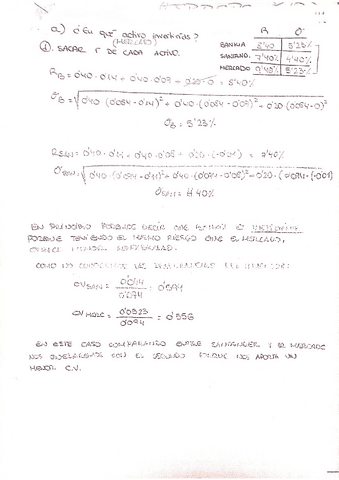 a) ¿En qué activo invertirías?
(MERCADO)
①. SACAR σ DE CADA ACTIVO.
R σ
BANKIA 8'40 5'23%
SANTAND. 7'40% 4'40%
MERCADO 9'40% 5'23%
R_B = 0'40·0'14 + 0'40·0'09 - 0'20·0 = 8'40%
σ_B = √0'40 (0'084-0'14)² + 0'40·(0'084-0'09)² + 0'20 (0'084-0)²
σ_B = 5'23%
R_SAN = 0'40·0'11 + 0'40·0'08 + 0'20·(-0'01) = 7'40%
σ_SAN = √0'40·(0'074-0'11)² + 0'40·(0'074-0'08)² + 0'20·(0'074-(-0'01)
σ_SAN = 4'40%
EN PRINCIPIO PODEMOS DECIR QUE BANKIA ES
PORQUE TENIENDO EL MISMO RIESGO QUE EL MERCADO,
OFRECE MENOR RENTABILIDAD.
COMO NO CONOCEMOS LAS DEL INVERSOR:
CV SAN = 0'044 / 0'074 = 0'594
CV MERC = 0'0523 / 0'094 = 0'556
EN ESTE CASO COMPARANDO ENTRE SANTANDER Y EL MERCADO
NOS QUEDAREMOS CON EL SEGUNDO PORQUE NOS APORTA UN
MENOR C.V.